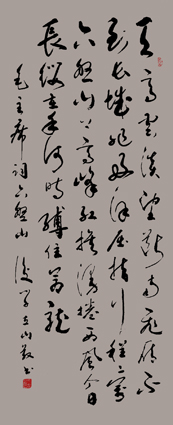 天高雲淡望斷南飛雁不
到長城非好漢屈指行程二萬
六盤山上高峰紅旗漫捲西風今日
長纓在手何時縛住蒼龍
毛主席詞六盤山